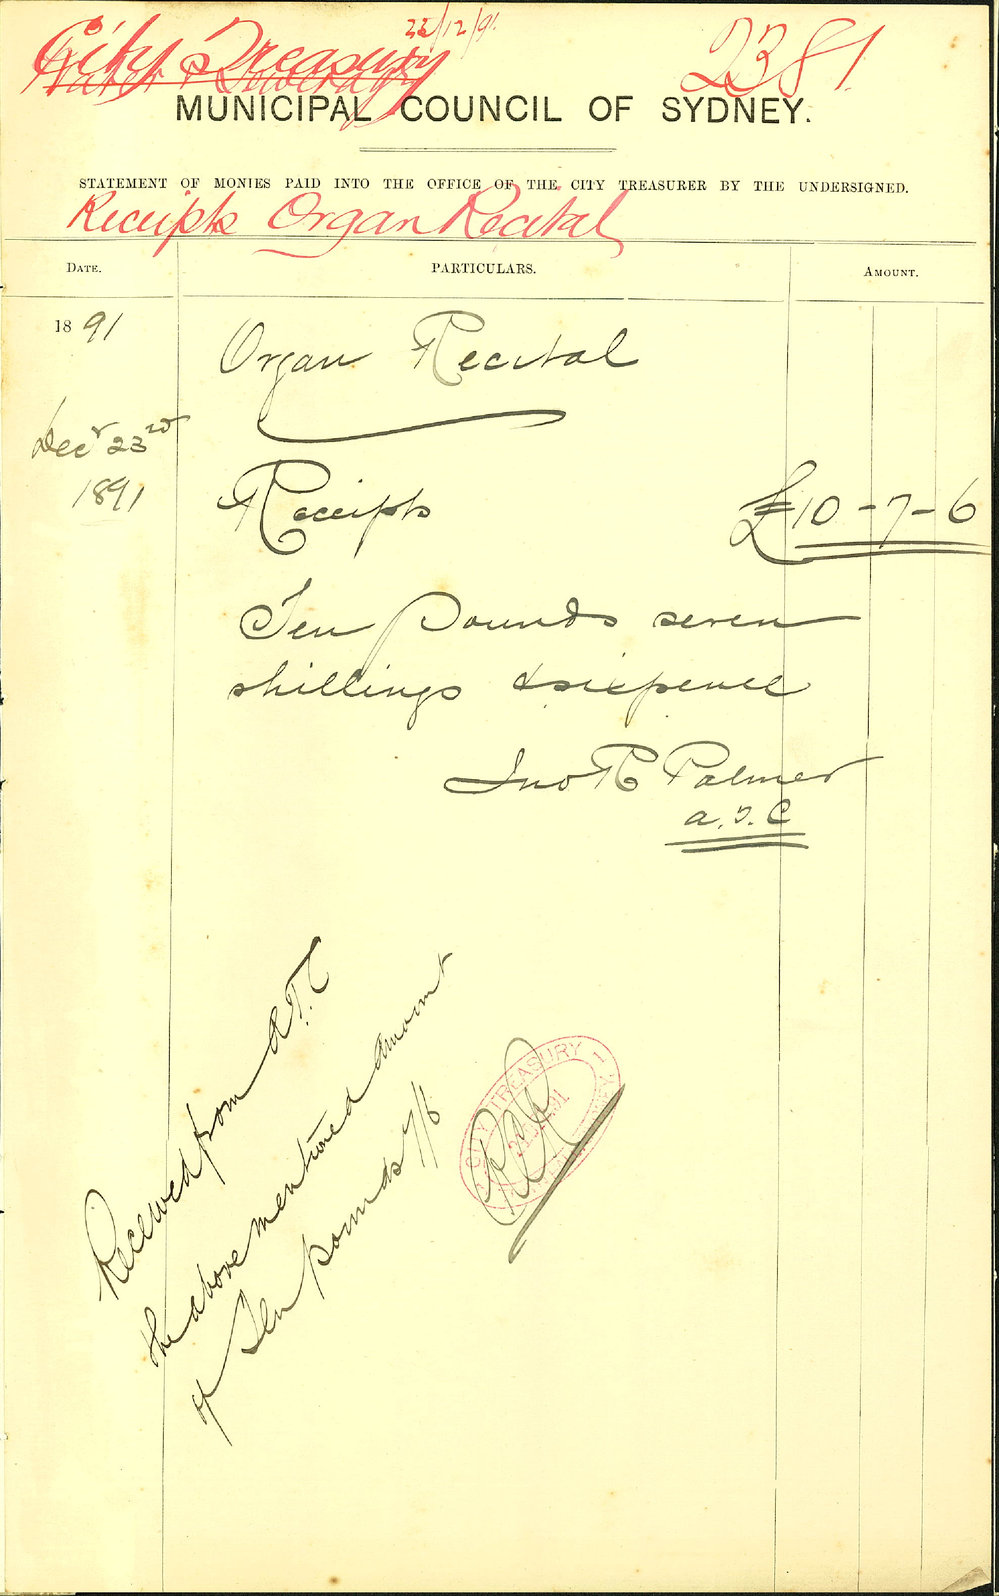 City Treasury 23/12/91 2381
Water & Sewerage
MUNICIPAL COUNCIL OF SYDNEY.
STATEMENT OF MONIES PAID INTO THE OFFICE OF THE CITY TREASURER BY THE UNDERSIGNED.
Receipts Organ Recital
DATE. PARTICULARS. AMOUNT.
1891
Organ Recital
Decr 23rd
1891
Receipts £10-7-6
Ten pounds seven
shillings & sixpence
Jno R Palmer
A.T.C
Received from A.T.C
the above mentioned amount
of Ten pounds 7/6
CITY TREASURY